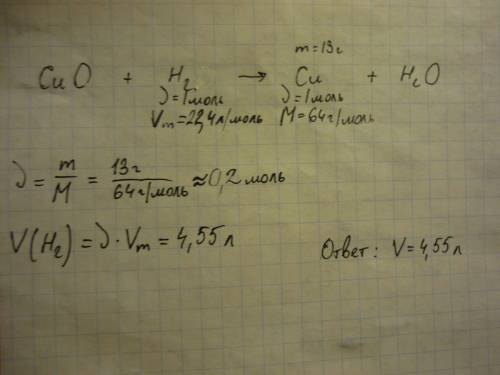 m = 13г
CuO + H₂ → Cu + H₂O
ν = 1моль ν = 1моль
Vm = 22,4л/моль M = 64г/моль
ν = m/M = 13г/64г/моль ≈ 0,2 моль
V(H₂) = ν · Vm = 4,55 л
Ответ: V = 4,55 л